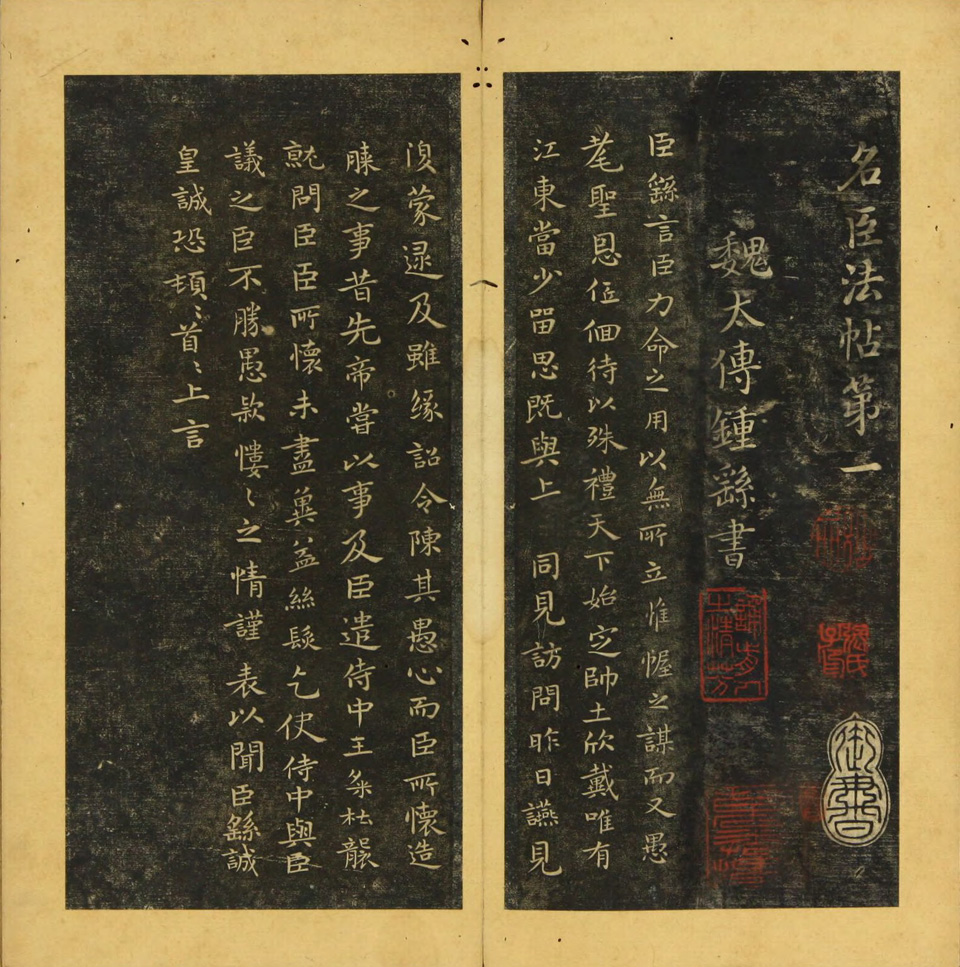 名臣法帖第一
魏太傅鍾繇書
臣繇言臣力命之用以無所立惟幄之謀而又愚
耄聖恩伍佪待以殊禮天下始定帥土欣戴唯有
江東當少畱思既與上 同見訪問昨日讌見
復蒙逮及雖緣詔令陳其愚心而臣所懷造
膝之事昔先帝嘗以事及臣遣侍中王粲杜襲
就問臣臣所懷未盡奚益絲髮乞使侍中與臣
議之臣不勝愚款慺〻之情謹 表以聞臣繇誠
皇誠恐頓〻首〻上言